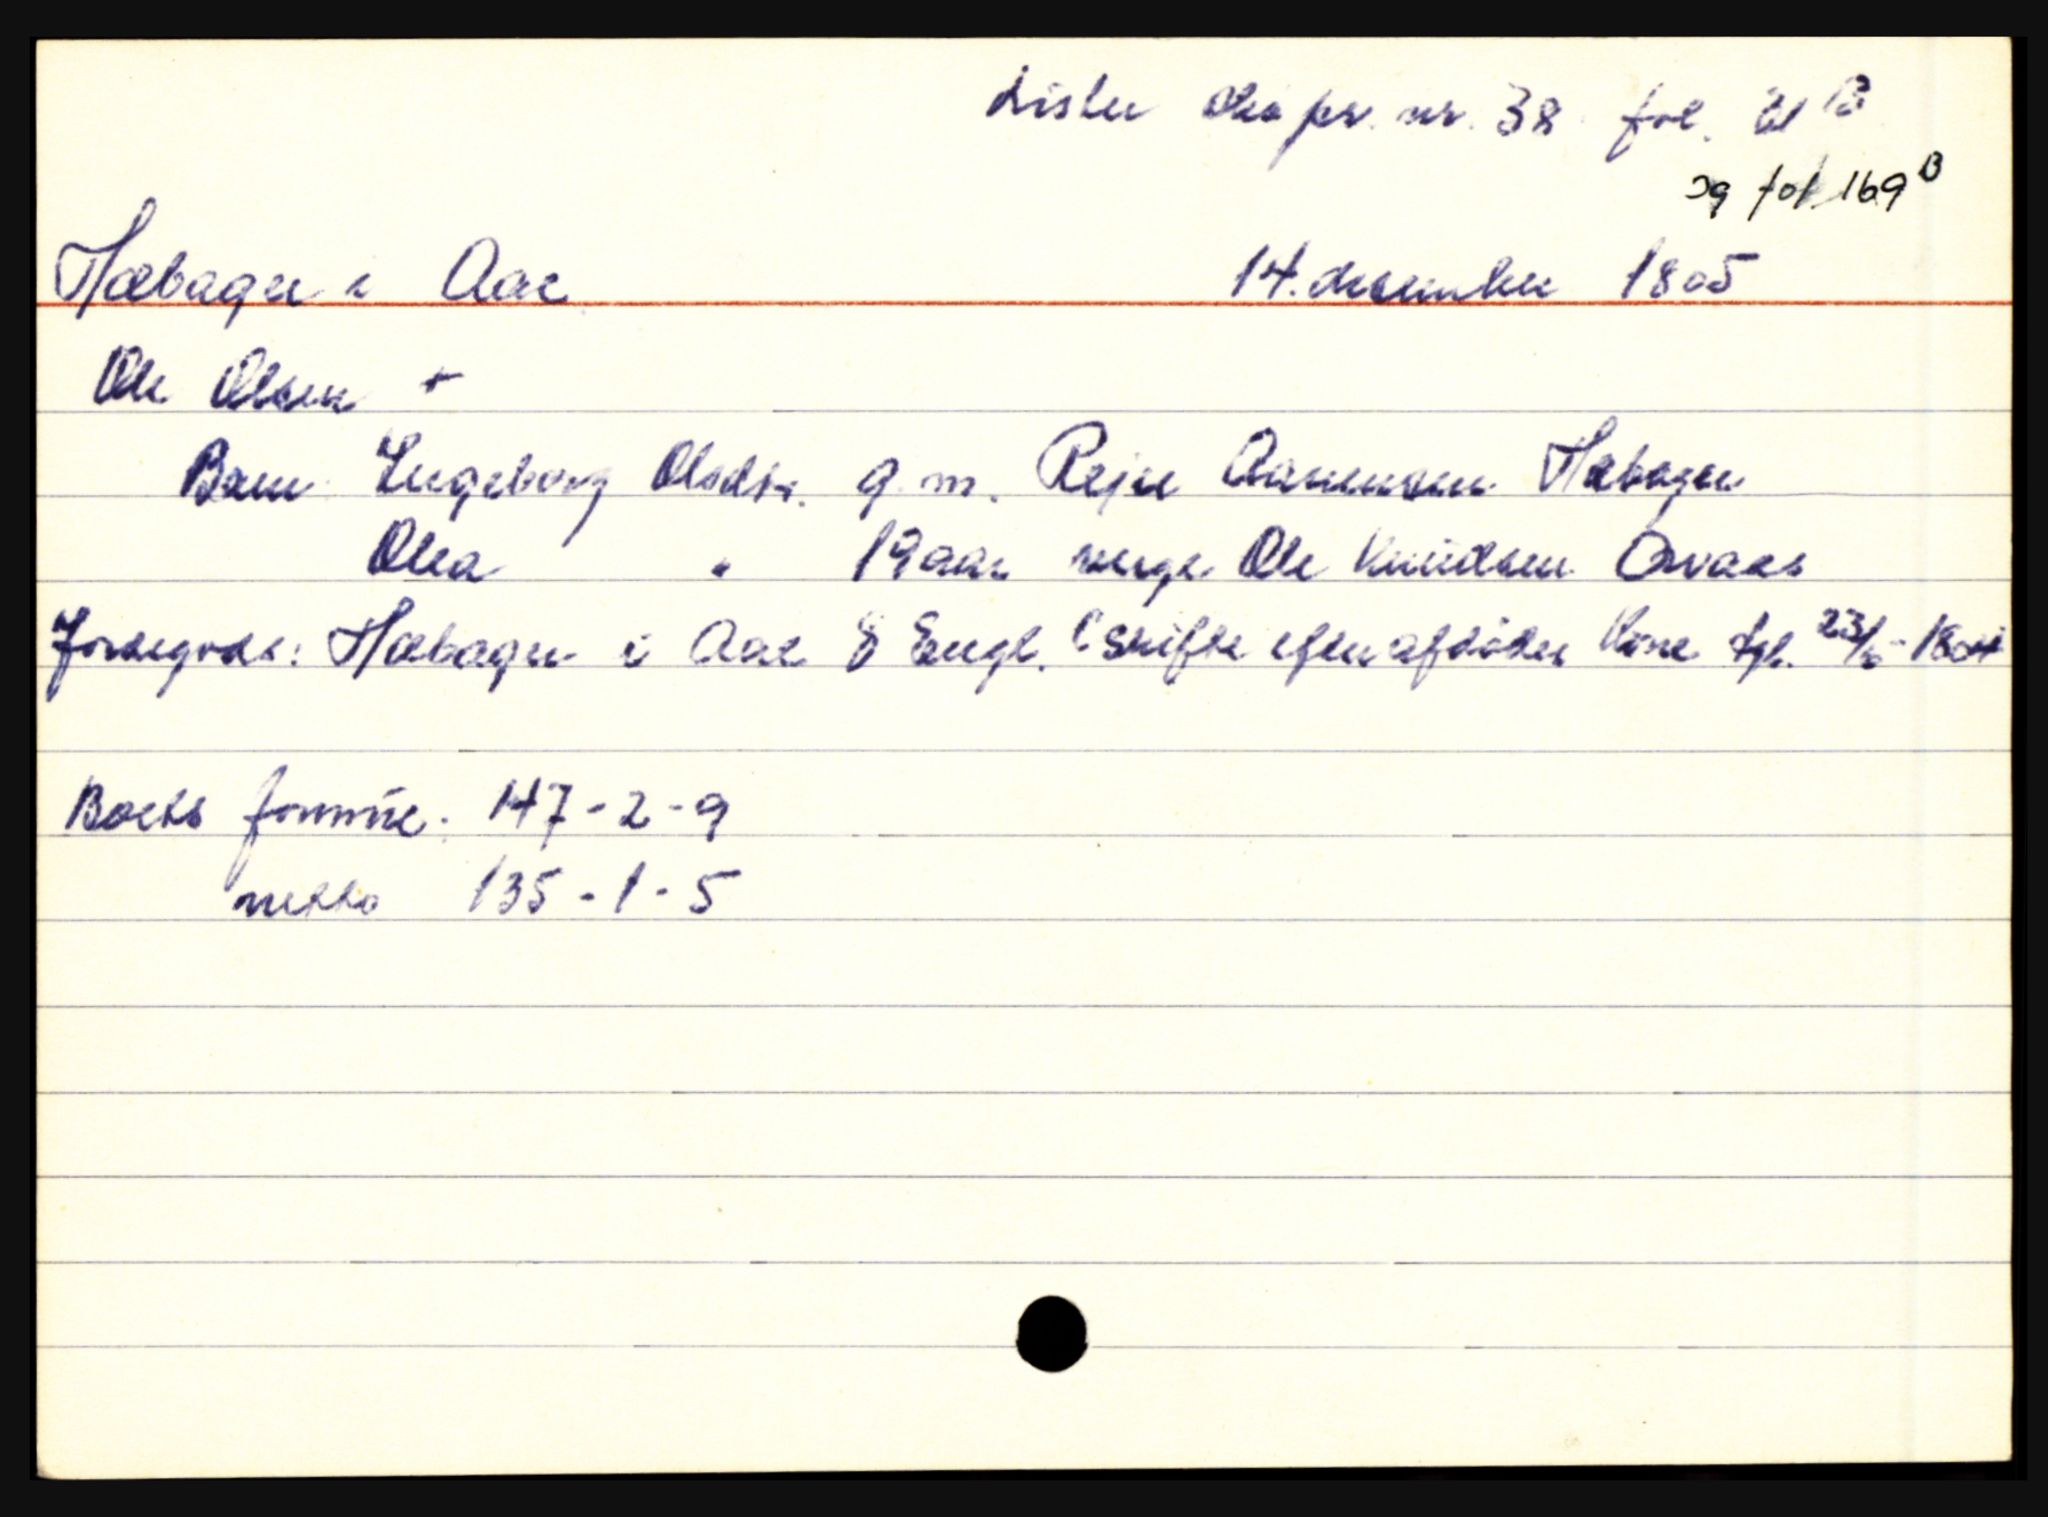 Lister sko pr. nr. 38 fol. 21 B
og fol 169 B
Hæbagen i Aae 14. desember 1805
Ole Olsen +
Barn: Ingeborg Olsdtr. g.m. Rejer Aanensen Hæbagen
Olea " 19 aar verge Ole Knudsen Øvaas
Jordegods: Hæbagen i Aae 8 Engl. (Skifte efter afdødes Kone tgl. 23/6-1804
Boets formue: 147-2-9
netto 135-1-5